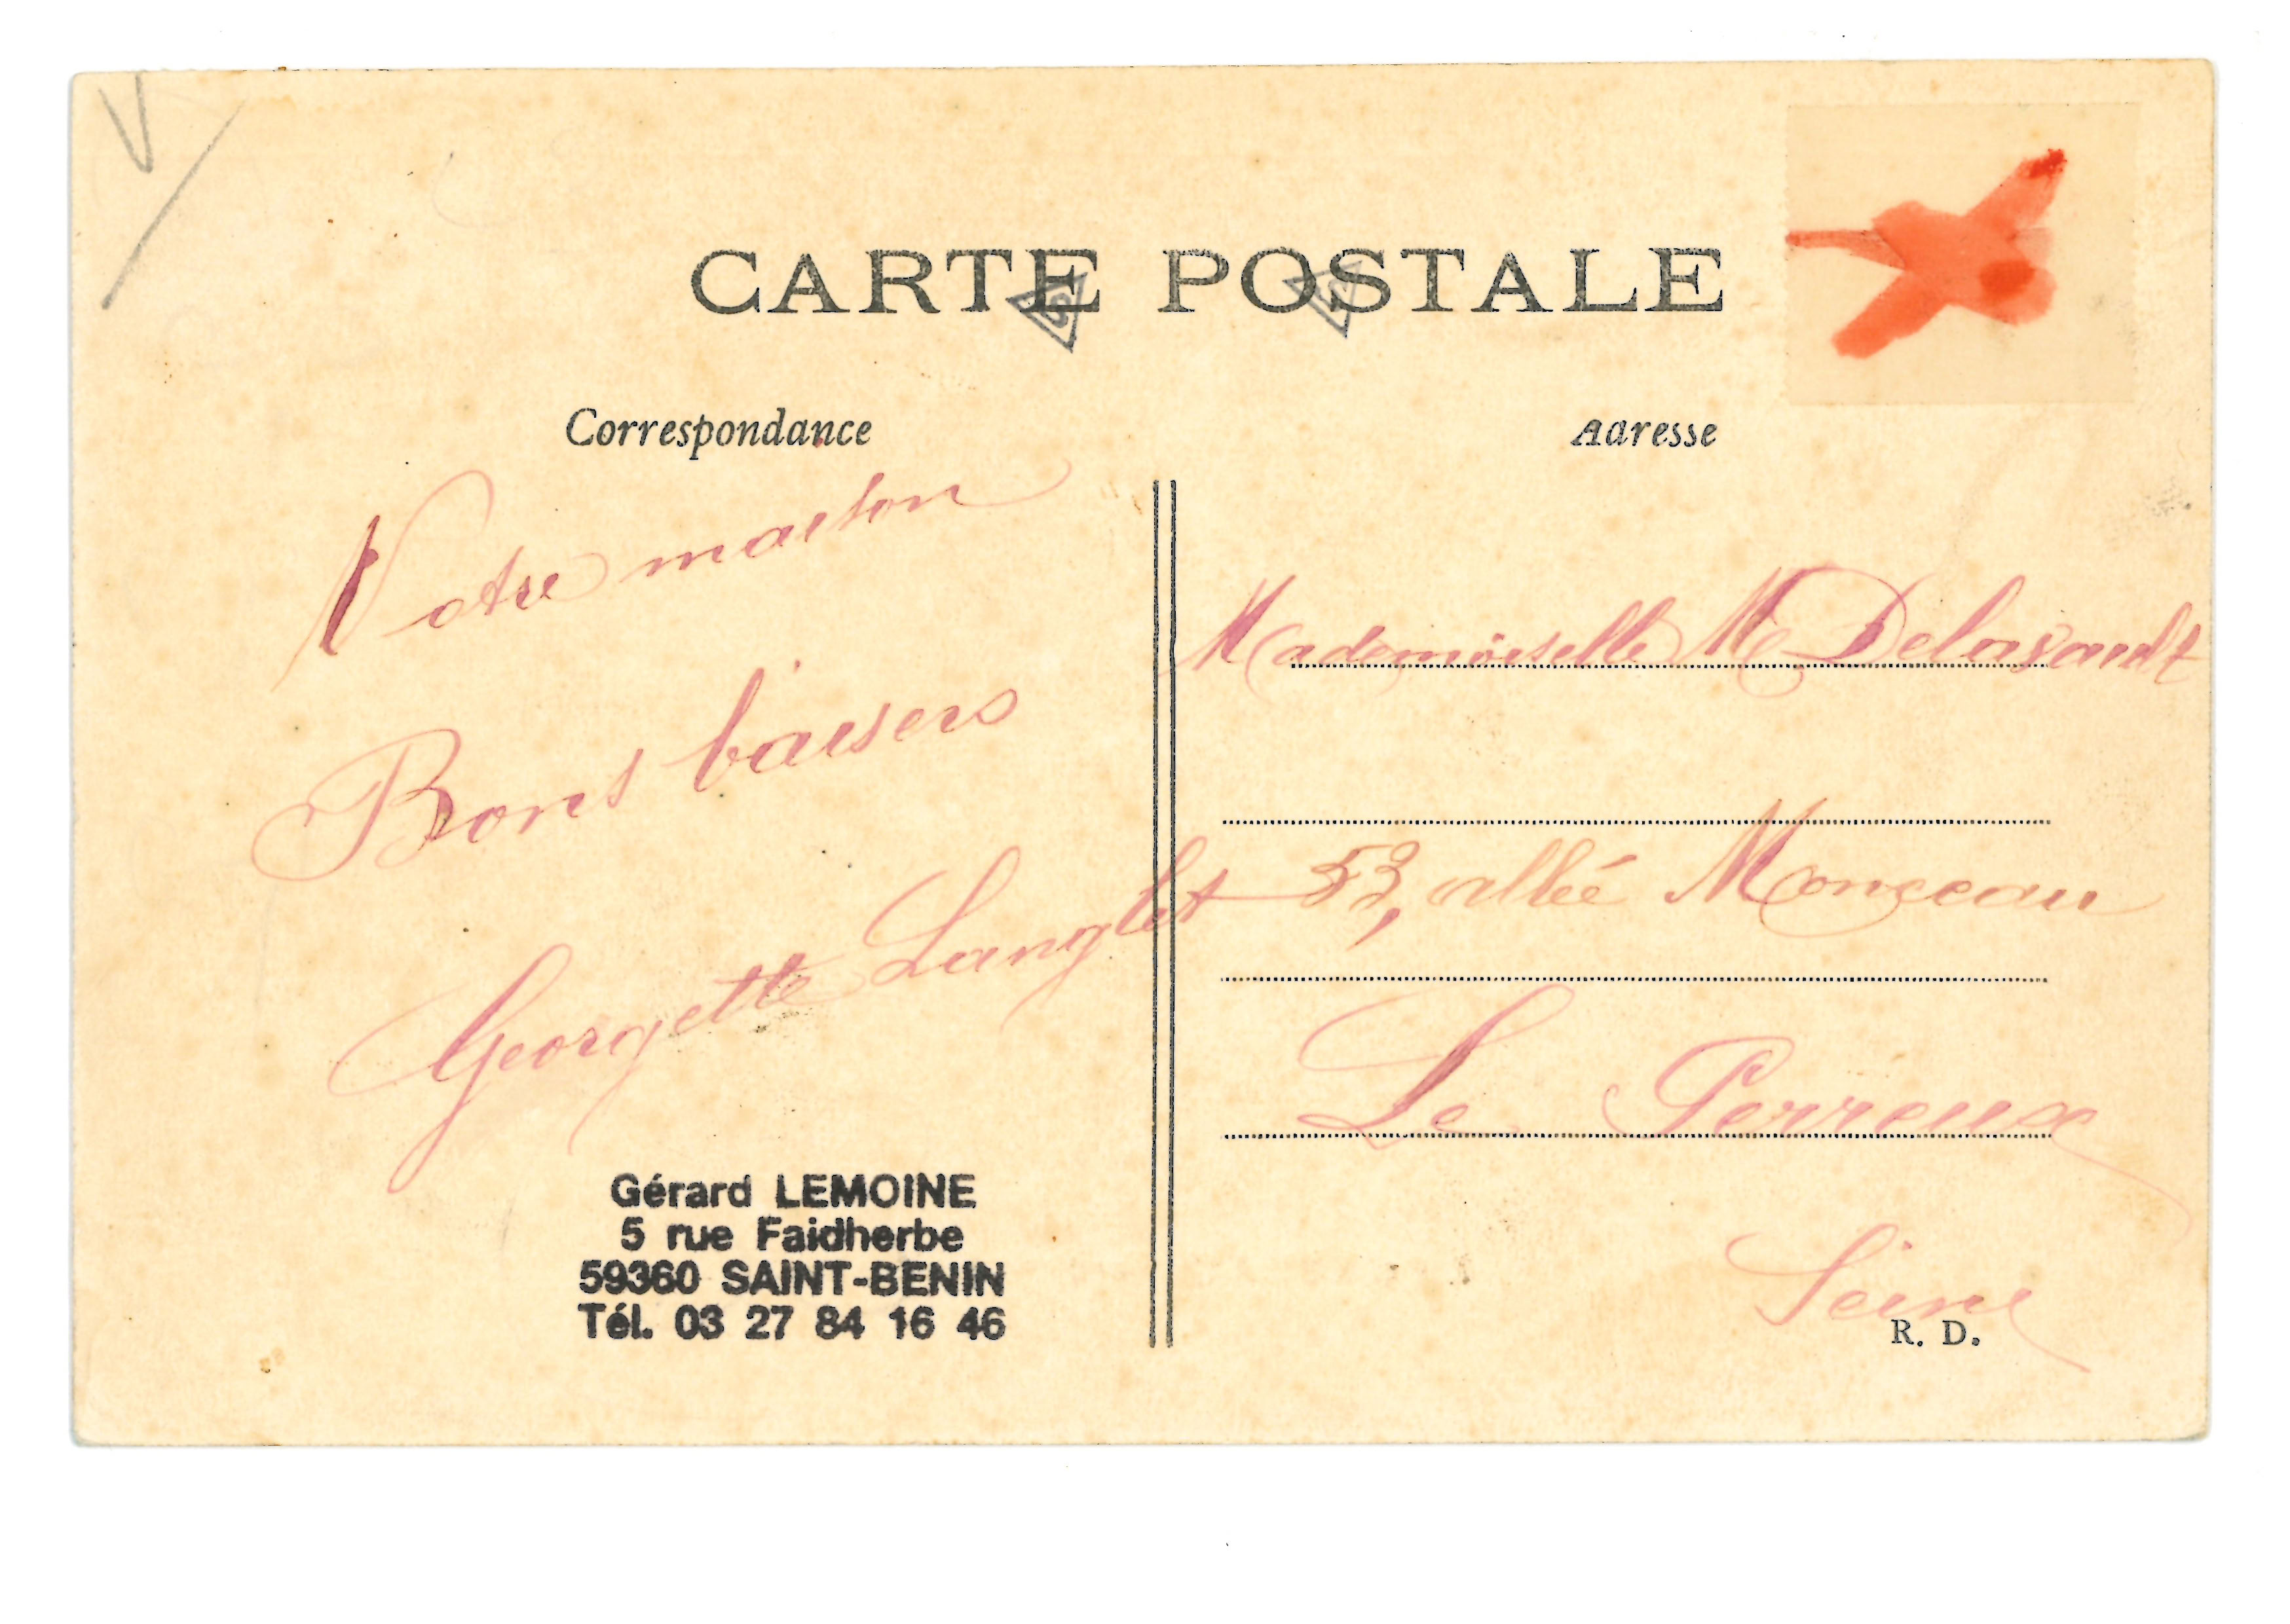 CARTE POSTALE
Correspondance
Adresse
Votre maison
Bons baisers
Georgette Langlet
Gérard LEMOINE
5 rue Faidherbe
59360 SAINT-BENIN
Tél. 03 27 84 16 46
Mademoiselle M
53, allée Monceau
Le Perreux
Seine
R. D.